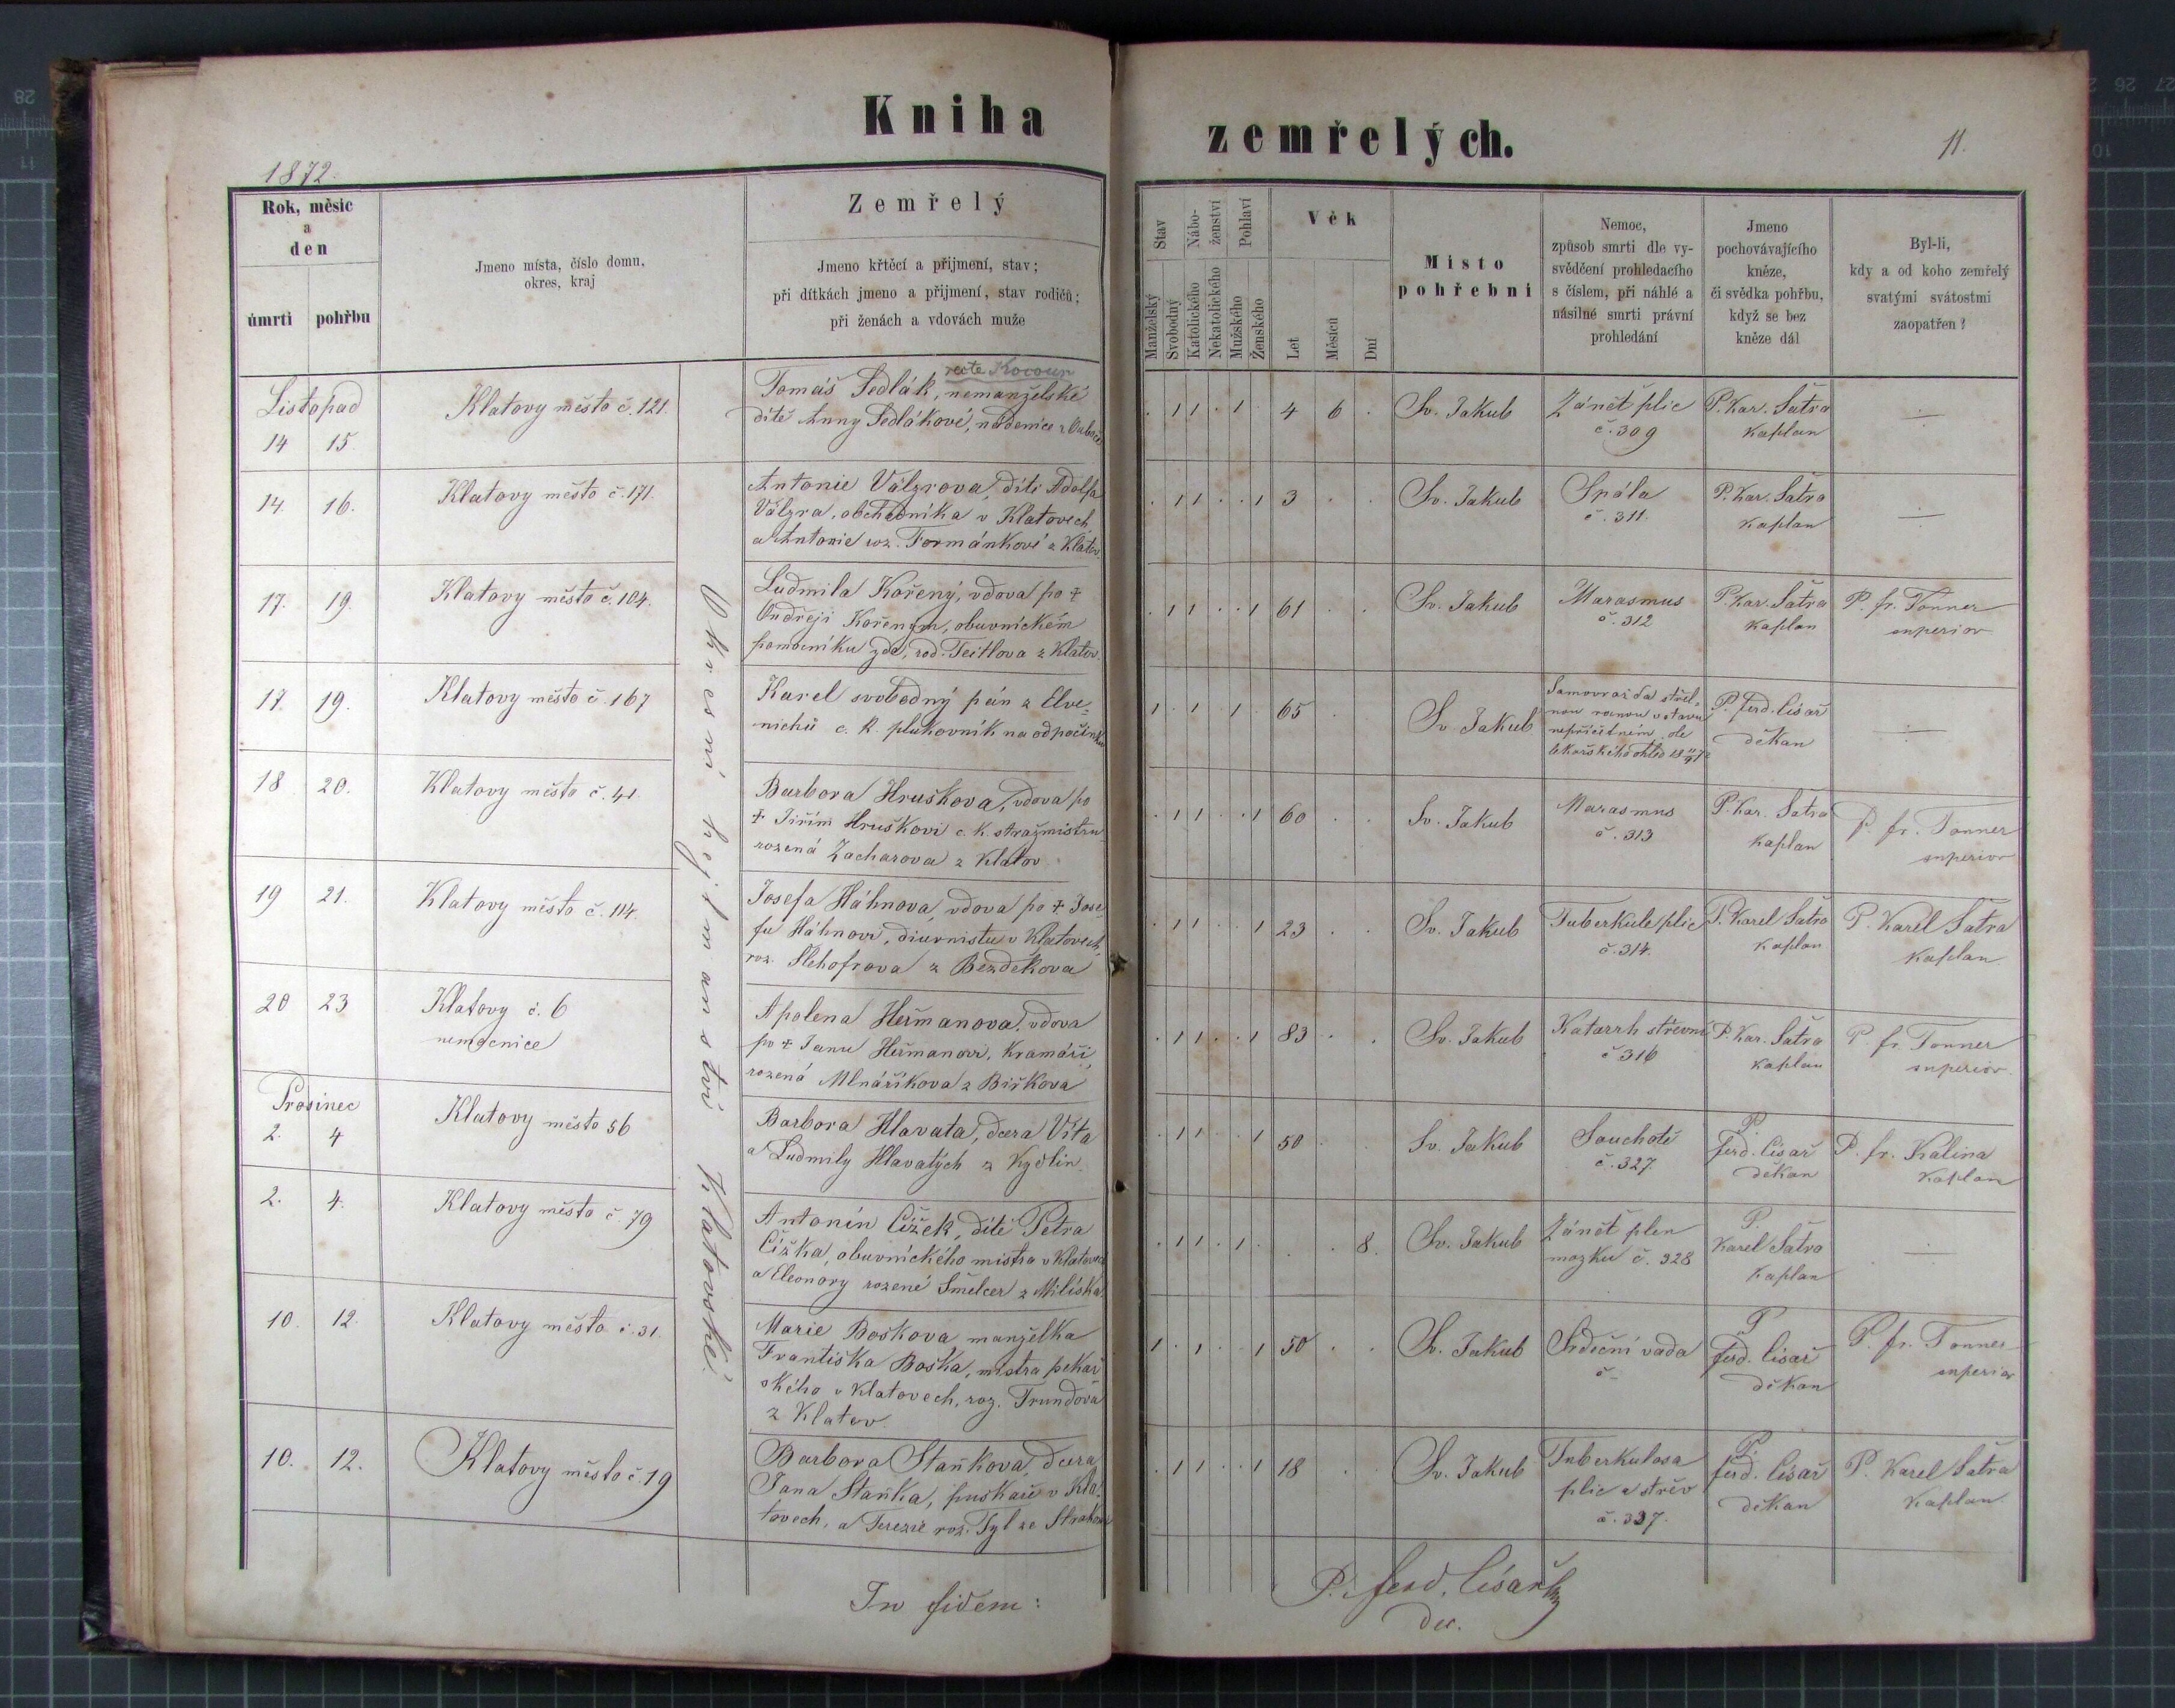 Kniha zemřelých.
1872.
11.
Rok, měsíc
a
den
úmrtí
pohřbu
Jmeno místa, číslo domu,
okres, kraj
Zemřelý
Jmeno křtěcí a přijmení, stav;
při dítkách jmeno a přijmení, stav rodičů;
při ženách a vdovách muže
Stav
Manželský
Svobodný
Náboženství
Katolického
Nekatolického
Pohlaví
Mužského
Ženského
Věk
Let
Měsíců
Dní
Místo
pohřební
Nemoc,
způsob smrti dle vy-
svědčení prohledacího
s číslem, při náhlé a
násilné smrti právní
prohledání
Jmeno
pochovávajícího
kněze,
či svědka pohřbu,
když se bez
kněze dál
Byl-li,
kdy a od koho zemřelý
svatými svátostmi
zaopatřen?
V okresní hejtmanství Klatovské.
Listopad
14 15
Klatovy město č. 121.
recte Kocour
Tomáš Sedlák, nemanželské
dítě Anny Sedlákové, nádenice
. 1 1 . 1 . 4 6 .
Sv. Jakub
Zánět plic
č. 309
P. Kar. Šatra
kaplan
14. 16.
Klatovy město č. 171.
Antonie Válzrova, dítě Adolfa
Válzra, obchodníka v Klatovech
a Antonie roz. Formánkové z Klatov.
. 1 1 . . 1 3 . .
Sv. Jakub
Spála
č. 311.
P. Kar. Šatra
kaplan
17. 19.
Klatovy město č. 104.
Ludmila Kořený, vdova po †
Ondřeji Kořeným, obuvnickém
pomocníku zde, rod. z Klatov.
. 1 1 . . 1 61 . .
Sv. Jakub
Marasmus
č. 312
P. Kar. Šatra
kaplan
P. fr. Tonner
superior
17. 19.
Klatovy město č. 167
Karel svobodný pán z Elve-
nichů c. k. plukovník na odpočinku
1 . 1 . 1 . 65 . .
Sv. Jakub
Samovražda střel-
nou ranou v stavu
nepříčetném dle
lékařského ohled.
P. ferd. Císař
děkan
18 20.
Klatovy město č. 41.
Barbora Hruškova, vdova po
† Jiřím Hruškovi c. k. strážmistru
rozená Zacharova z Klatov.
. 1 1 . . 1 60 . .
Sv. Jakub
Marasmus
č. 313
P. Kar. Šatra
kaplan
P. fr. Tonner
superior
19 21.
Klatovy město č. 114.
Josefa Háhnova, vdova po † Jose-
fu Háhnovi, diurnistu v Klatovech,
roz. Šlehofrova z Bezděkova
. 1 1 . . 1 23 . .
Sv. Jakub
Tuberkule plic
č. 314.
P. Karel Šatra
kaplan
P. Karel Šatra
kaplan
20 23
Klatovy č. 6
nemocnice
Apolena Heřmanova, vdova
po † Janu Heřmanovi, kramáři,
rozená Mlnáříkova z Biřkova
. 1 1 . . 1 83 . .
Sv. Jakub
Katarrh střevní
č 316
P. Kar. Šatra
kaplan
P. fr. Tonner
superior.
Prosinec
2. 4
Klatovy město 56
Barbora Hlavata, dcera Víta
a Ludmily Hlavatých z Kydlin.
. 1 1 . . 1 50 . .
Sv. Jakub
Souchotě
č. 327
P.
ferd. Císař
děkan
P. fr. Kalina
kaplan
2. 4.
Klatovy město č. 79
Antonín Čížek, dítě Petra
Čížka, obuvnického mistra v Klatovech
a Eleonory rozené Šmelcer z
. 1 1 . 1 . . . 8.
Sv. Jakub
Zánět plen
mozku č. 328
P.
Karel Šatra
kaplan
10. 12.
Klatovy město č. 31.
Marie Boškova manželka
Františka Boška, mistra pekař-
ského v Klatovech, roz. Trundova
z Klatov.
1 . 1 . . 1 50 . .
Sv. Jakub
Srdeční vada
č –
P
ferd. Císař
děkan
P. fr. Tonner
superior
10. 12.
Klatovy město č. 19
Barbora Staňkova, dcera
Jana Staňka, puškaře v Kla-
tovech, a Terezie roz. Tyl ze
. 1 1 . . 1 18 . .
Sv. Jakub
Tuberkulosa
plic a střev
č. 337.
P.
ferd. Císař
děkan
P. Karel Šatra
kaplan.
In fidem:
P. ferd. Císař
dec.